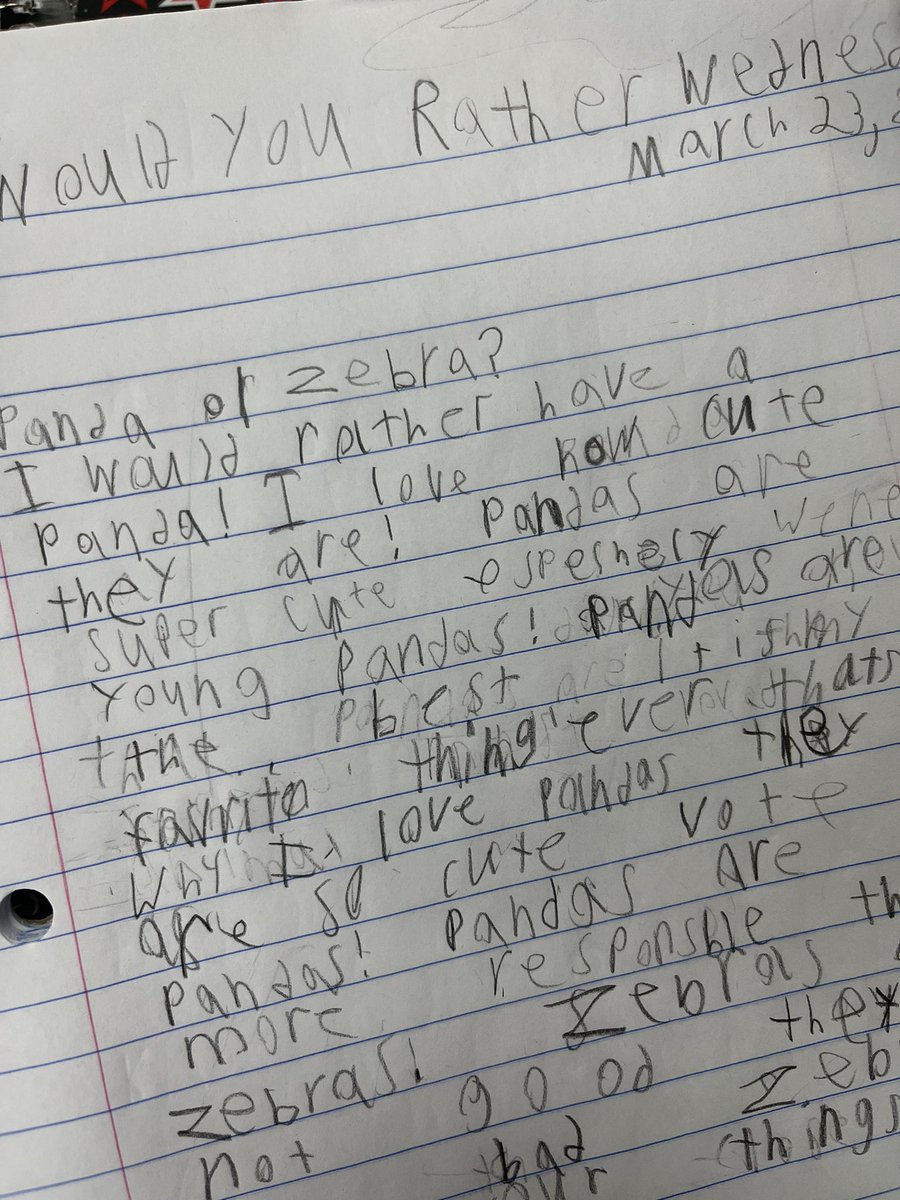 Would You Rather Wednes
March 23,
Panda or zebra?
I would rather have a
panda! I love how cute
they are! pandas are
super cute espeshely wene
young pandas! pandas are
the best
favrite thing ever thats
why I love pandas they
are so cute vote
pandas! pandas are
more responsble th
zebras! zebras
not good they
bad zeb
our things